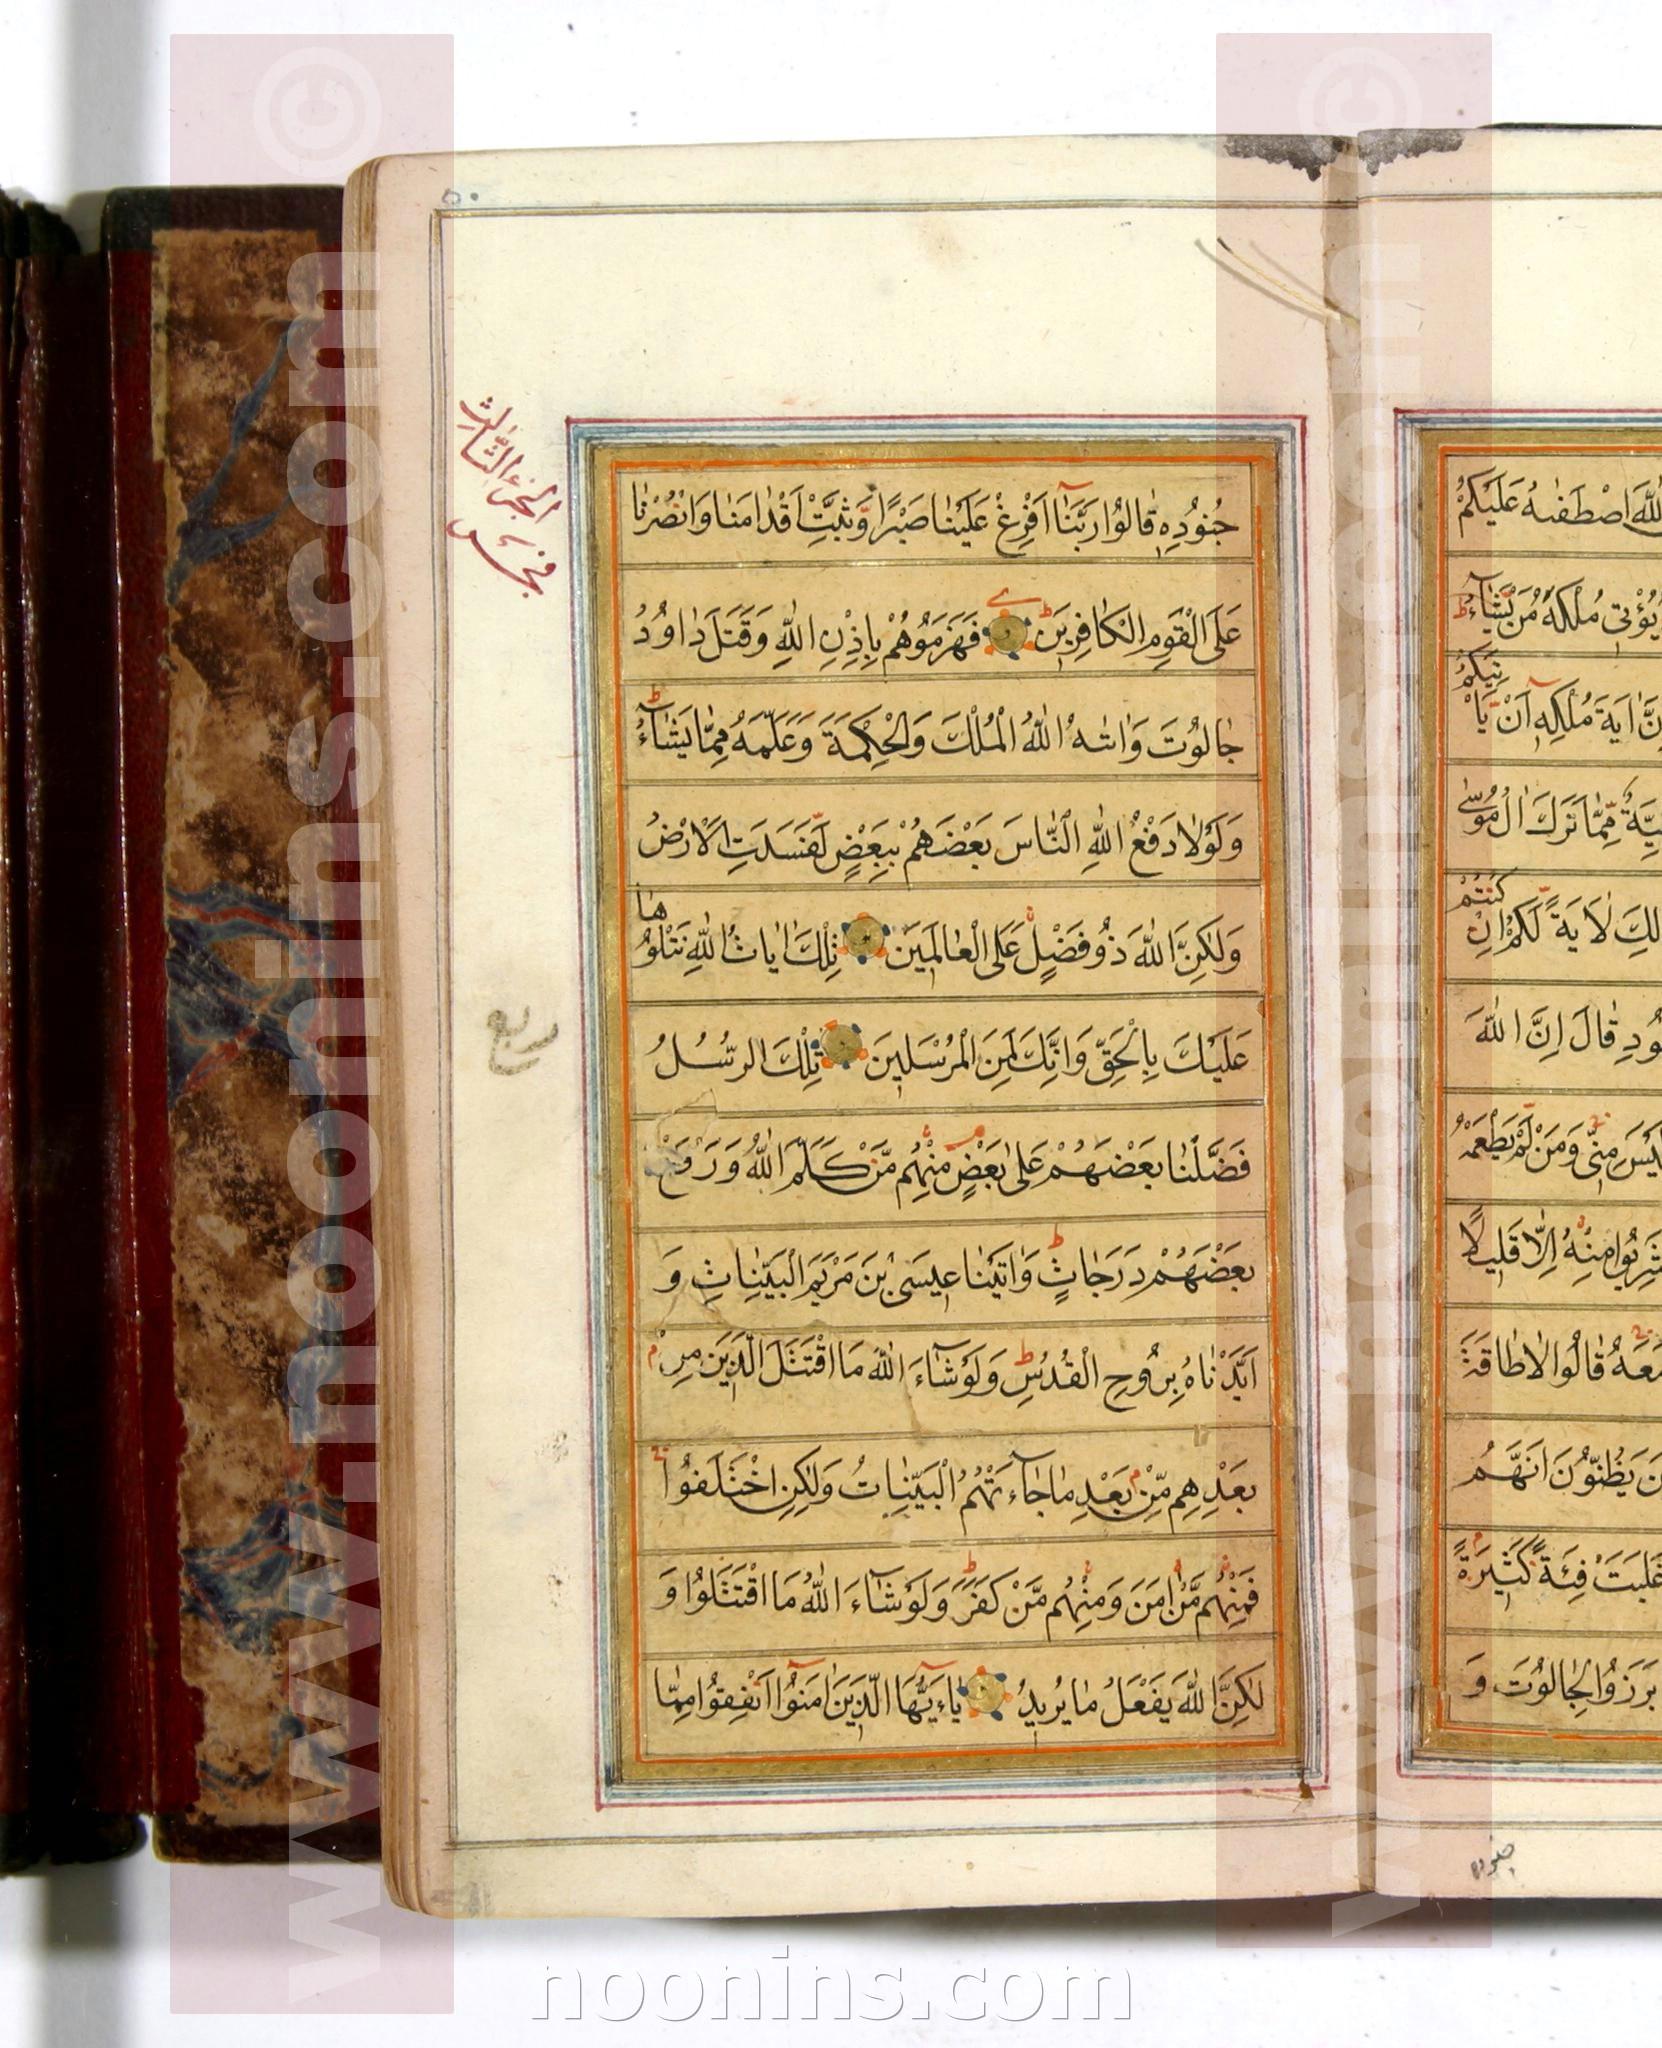 ٥٠
الجزء الثالث
جُنُودِهِ قٰالُوُا رَبَّنٰا اَفْرِغْ عَلَيْنٰا صَبْرًا وَّثَبِّتْ اَقْدٰامَنٰا وَانْصُرْنٰا
عَلَى الْقَوِمِ الْكٰافِرِينَ فَهَزَمَوُهُمْ بِاِذْنِ اللّٰهِ وَقَتَلَ دٰاوُدُ
جٰالُوُتَ وَاٰتٰهُ اللّٰهُ الْمُلْكَ وَالْحِكْمَةَ وَعَلَّمَهُ مِمّٰا يَشٰآءُ
وَلَوْلٰا دَفْعُ اللّٰهِ النّٰاسَ بَعْضَهُمْ بِبَعْضٍ لَّفَسَدَتِ الْاَرْضُ
وَلٰكِنَّ اللّٰهَ ذُو فَضْلٍ عَلَى الْعٰالَمِينَ تِلْكَ اٰيٰاتُ اللّٰهِ نَتْلُوُهٰا
عَلَيْكَ بِالْحَقِّ وَاِنَّكَ لَمِنَ الْمُرْسَلِينَ تِلْكَ الرُّسُلُ
ربع
فَضَّلْنٰا بَعْضَهُمْ عَلىٰ بَعْضٍ مِنْهُم مَّنْ كَلَّمَ اللّٰهُ وَرَفَعَ
بَعْضَهُمْ دَرَجٰاتٍ وَاٰتَيْنٰا عِيسَى بْنَ مَرْيَمَ الْبَيِّنٰاتِ وَ
اَيَّدْنٰاهُ بِرُوُحِ الْقُدُسِ وَلَوْ شٰآءَ اللّٰهُ مَا اقْتَتَلَ الَّذِينَ مِنْ
بَعْدِهِم مِّنْ بَعْدِ مٰا جٰآءَتْهُمُ الْبَيِّنٰاتُ وَلٰكِنِ اخْتَلَفُوا
فَمِنْهُم مَّنْ اٰمَنَ وَمِنْهُم مَّنْ كَفَرَ وَلَوْ شٰآءَ اللّٰهُ مَا اقْتَتَلُوُا وَ
لٰكِنَّ اللّٰهَ يَفْعَلُ مٰا يُرِيدُ يٰآءَيُّهَا الَّذِينَ اٰمَنُوُا اَنْفِقُوُا مِمّٰا
اللّٰهَ اصْطَفٰهُ عَلَيْكُمْ
يُؤْتِى مُلْكَهُ مَنْ يَّشٰآءُ
اِنَّ اٰيَةَ مُلْكِهِ اَنْ يَاْتِيَكُمُ
مِّمّٰا تَرَكَ اٰلُ مُوُسىٰ
لَاٰيَةً لَكُمْ اِنْ كُنْتُمْ
قٰالَ اِنَّ اللّٰهَ
فَلَيْسَ مِنِّى وَمَنْ لَمْ يَطْعَمْهُ
فَشَرِبُوا مِنْهُ اِلّٰا قَلِيلًا
مَعَهُ قٰالُوُا لٰا طٰاقَةَ
يَظُنُّونَ اَنَّهُمْ
غَلَبَتْ فِئَةً كَثِيرَةً
بَرَزُوُا لِجٰالُوُتَ وَ
جنوده
www.noonins.com ©
www.noonins.com ©
noonins.com